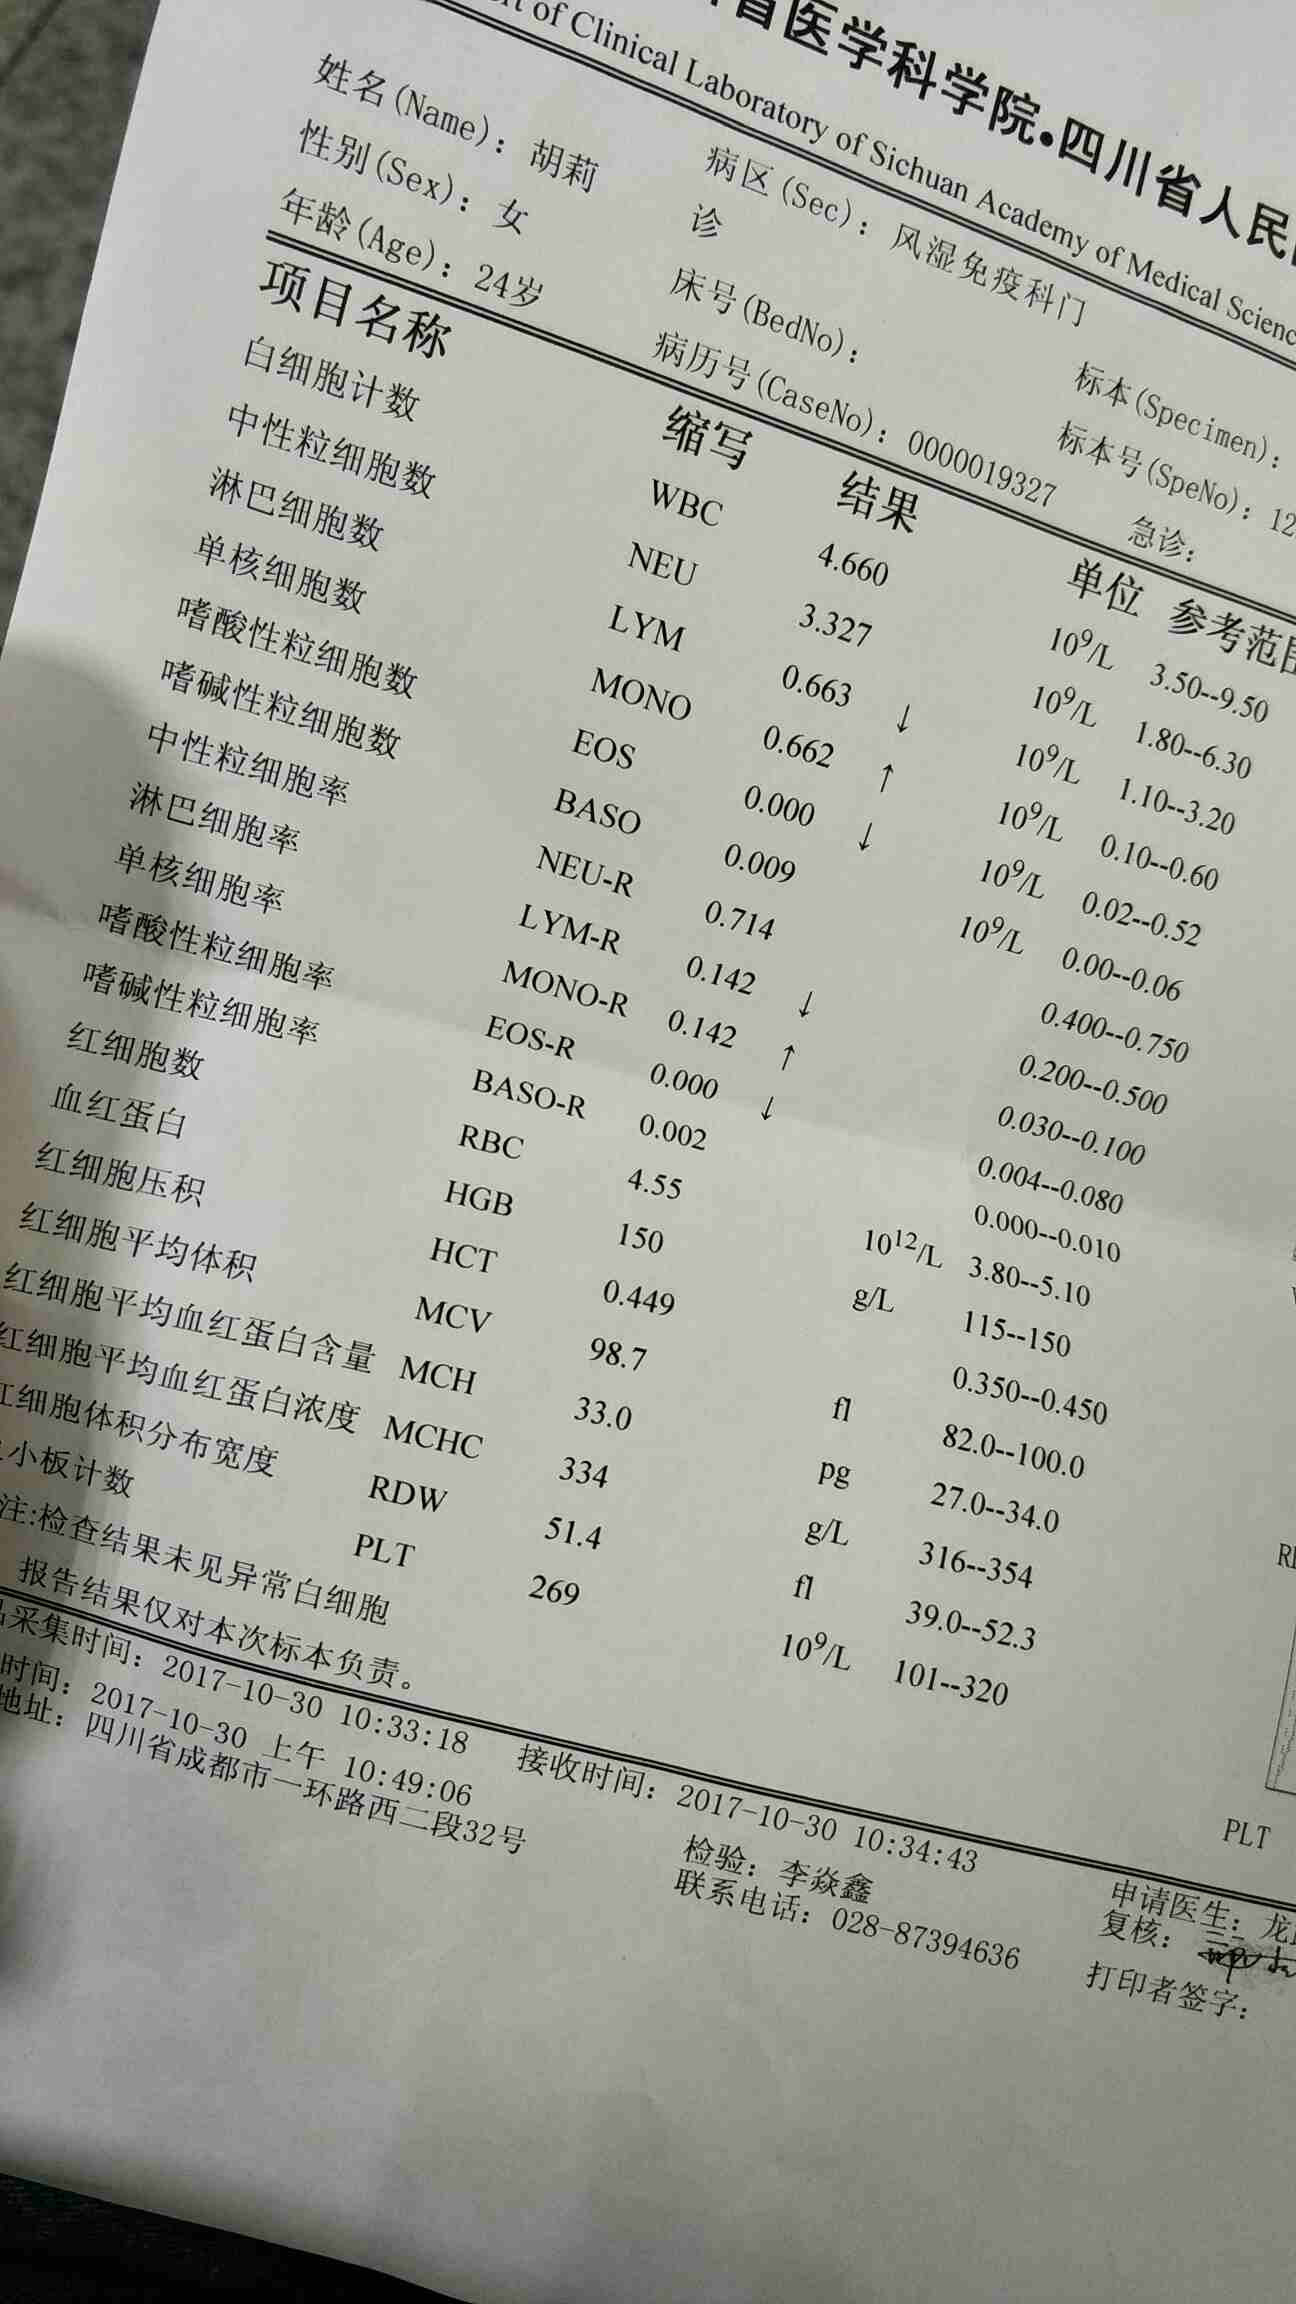 省医学科学院·四川省人民
of Clinical Laboratory of Sichuan Academy of Medical Scienc
姓名(Name): 胡莉
病区(Sec): 风湿免疫科门
诊
标本(Specimen):
性别(Sex): 女
床号(BedNo):
标本号(SpeNo): 12
年龄(Age): 24岁
病历号(CaseNo): 0000019327
急诊:
项目名称 缩写 结果 单位 参考范围
白细胞计数 WBC 4.660 10⁹/L 3.50--9.50
中性粒细胞数 NEU 3.327 10⁹/L 1.80--6.30
淋巴细胞数 LYM 0.663 ↓ 10⁹/L 1.10--3.20
单核细胞数 MONO 0.662 ↑ 10⁹/L 0.10--0.60
嗜酸性粒细胞数 EOS 0.000 ↓ 10⁹/L 0.02--0.52
嗜碱性粒细胞数 BASO 0.009 10⁹/L 0.00--0.06
中性粒细胞率 NEU-R 0.714 0.400--0.750
淋巴细胞率 LYM-R 0.142 ↓ 0.200--0.500
单核细胞率 MONO-R 0.142 ↑ 0.030--0.100
嗜酸性粒细胞率 EOS-R 0.000 ↓ 0.004--0.080
嗜碱性粒细胞率 BASO-R 0.002 0.000--0.010
红细胞数 RBC 4.55 10¹²/L 3.80--5.10
血红蛋白 HGB 150 g/L 115--150
红细胞压积 HCT 0.449 0.350--0.450
红细胞平均体积 MCV 98.7 fl 82.0--100.0
红细胞平均血红蛋白含量 MCH 33.0 pg 27.0--34.0
红细胞平均血红蛋白浓度 MCHC 334 g/L 316--354
红细胞体积分布宽度 RDW 51.4 fl 39.0--52.3
小板计数 PLT 269 10⁹/L 101--320
注:检查结果未见异常白细胞
报告结果仅对本次标本负责。
采集时间: 2017-10-30 10:33:18 接收时间: 2017-10-30 10:34:43 申请医生: 龙
时间: 2017-10-30 上午 10:49:06 检验: 李焱鑫 复核:
地址: 四川省成都市一环路西二段32号 联系电话: 028-87394636 打印者签字:
PLT